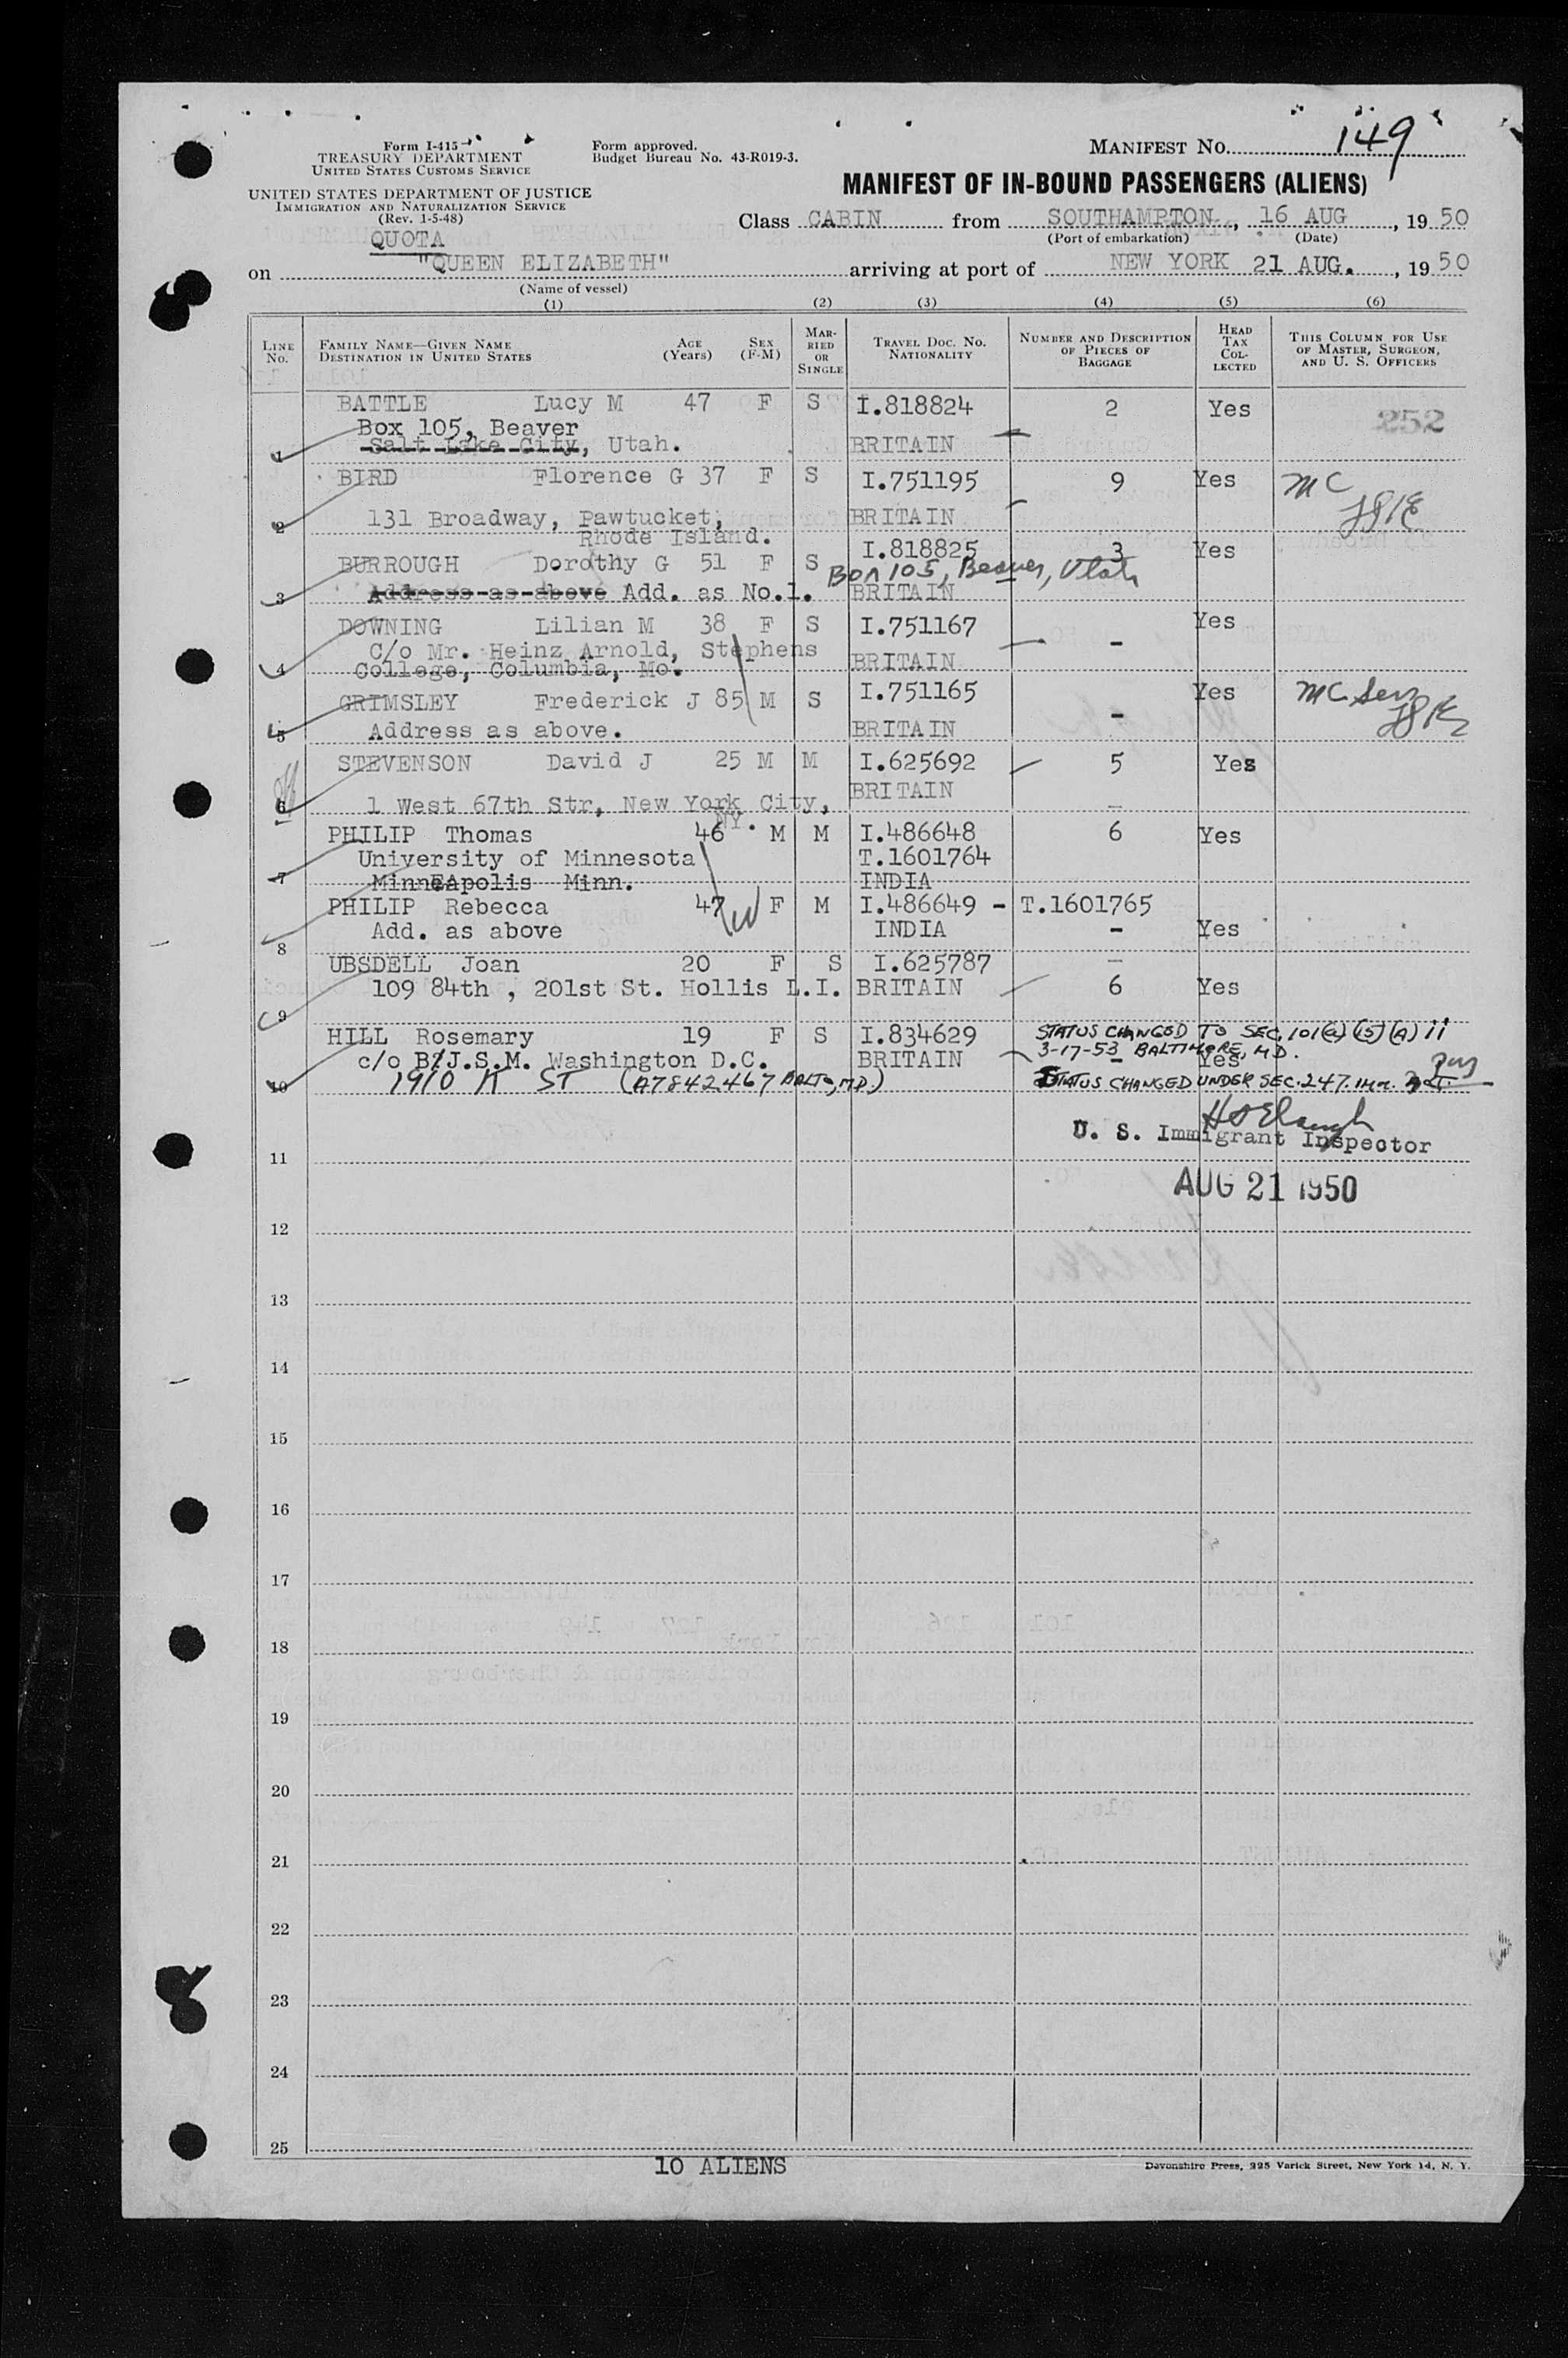 Form I-415
TREASURY DEPARTMENT
UNITED STATES CUSTOMS SERVICE
UNITED STATES DEPARTMENT OF JUSTICE
IMMIGRATION AND NATURALIZATION SERVICE
(Rev. 1-5-48)
Form approved.
Budget Bureau No. 43-R019-3.
MANIFEST NO. 149
MANIFEST OF IN-BOUND PASSENGERS (ALIENS)
Class CABIN from SOUTHAMPTON, 16 AUG, 1950
(Port of embarkation) (Date)
QUOTA
on "QUEEN ELIZABETH" arriving at port of NEW YORK 21 AUG., 1950
(Name of vessel)
(1) (2) (3) (4) (5) (6)
LINE No. FAMILY NAME—GIVEN NAME DESTINATION IN UNITED STATES AGE (Years) SEX (F-M) MARRIED OR SINGLE TRAVEL DOC. NO. NATIONALITY NUMBER AND DESCRIPTION OF PIECES OF BAGGAGE HEAD TAX COLLECTED THIS COLUMN FOR USE OF MASTER, SURGEON, AND U. S. OFFICERS
BATTLE Lucy M 47 F S I.818824 2 Yes 252
Box 105, Beaver
1 Salt Lake City, Utah. BRITAIN
BIRD Florence G 37 F S I.751195 9 Yes MC
2 131 Broadway, Pawtucket, BRITAIN
Rhode Island.
BURROUGH Dorothy G 51 F S I.818825 3 Yes
Box 105, Beaver, Utah
3 Address as above Add. as No.1. BRITAIN
DOWNING Lilian M 38 F S I.751167 - Yes
C/o Mr. Heinz Arnold, Stephens
4 College, Columbia, Mo. BRITAIN
GRIMSLEY Frederick J 85 M S I.751165 - Yes MC
5 Address as above. BRITAIN
STEVENSON David J 25 M M I.625692 5 Yes
6 1 West 67th Str, New York City, BRITAIN
NY.
PHILIP Thomas 46 M M I.486648 6 Yes
University of Minnesota T.1601764
7 MinnEapolis Minn. INDIA
PHILIP Rebecca 47 F M I.486649 - T.1601765
8 Add. as above INDIA - Yes
UBSDELL Joan 20 F S I.625787
109 84th , 201st St. Hollis L.I. BRITAIN 6 Yes
9
HILL Rosemary 19 F S I.834629 STATUS CHANGED TO SEC. 101(a)(15)(A) ii
c/o B/J.S.M. Washington D.C. BRITAIN - Yes 3-17-53 BALTIMORE, MD.
10 1910 K ST (A7842467 BALTO, MD.) STATUS CHANGED UNDER SEC. 247.
U. S. Immigrant Inspector
11
AUG 21 1950
12
13
14
15
16
17
18
19
20
21
22
23
24
25
10 ALIENS
Devonshire Press, 225 Varick Street, New York 14, N. Y.